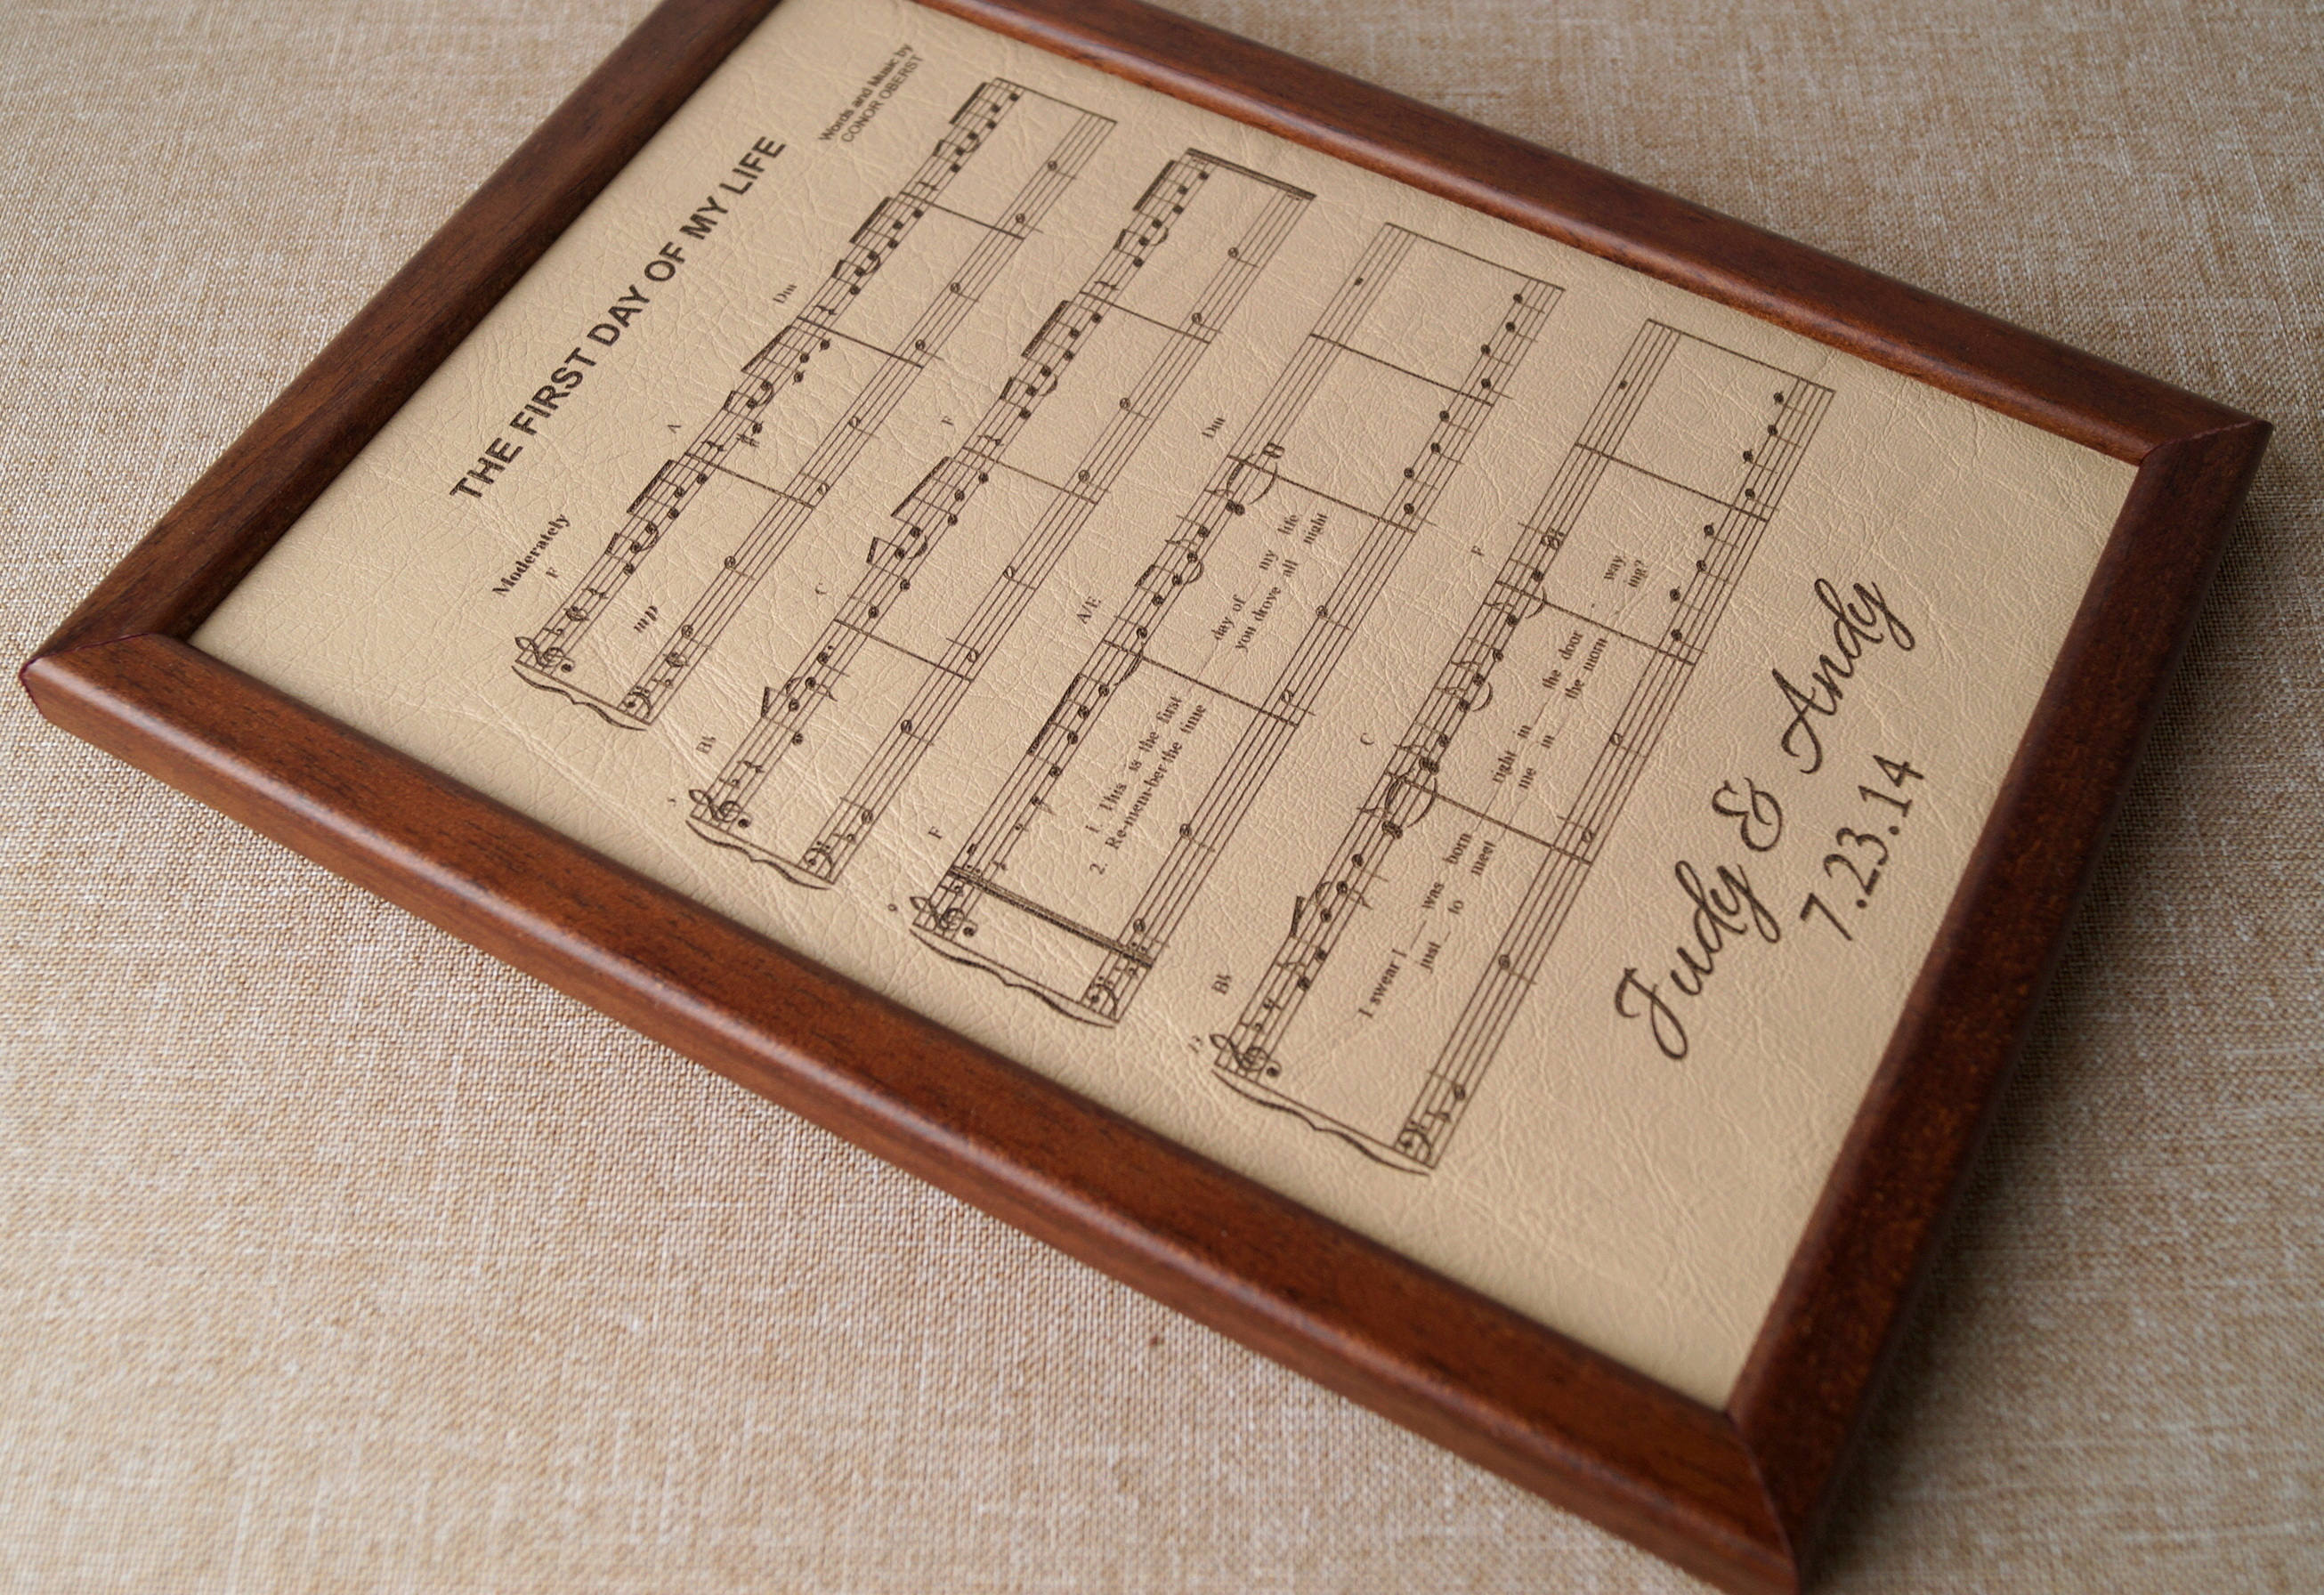 THE FIRST DAY OF MY LIFE
Words and Music by
CONOR OBERST
Moderately
F A Dm
mp
3
B♭ C F
6
F A/E Dm
1. This is the first day of my life
2. Re-mem-ber the time you drove all night
B♭ C F
I swear I was born right in the door - way
just to meet me in the morn - ing?
Judy & Andy
7.23.14